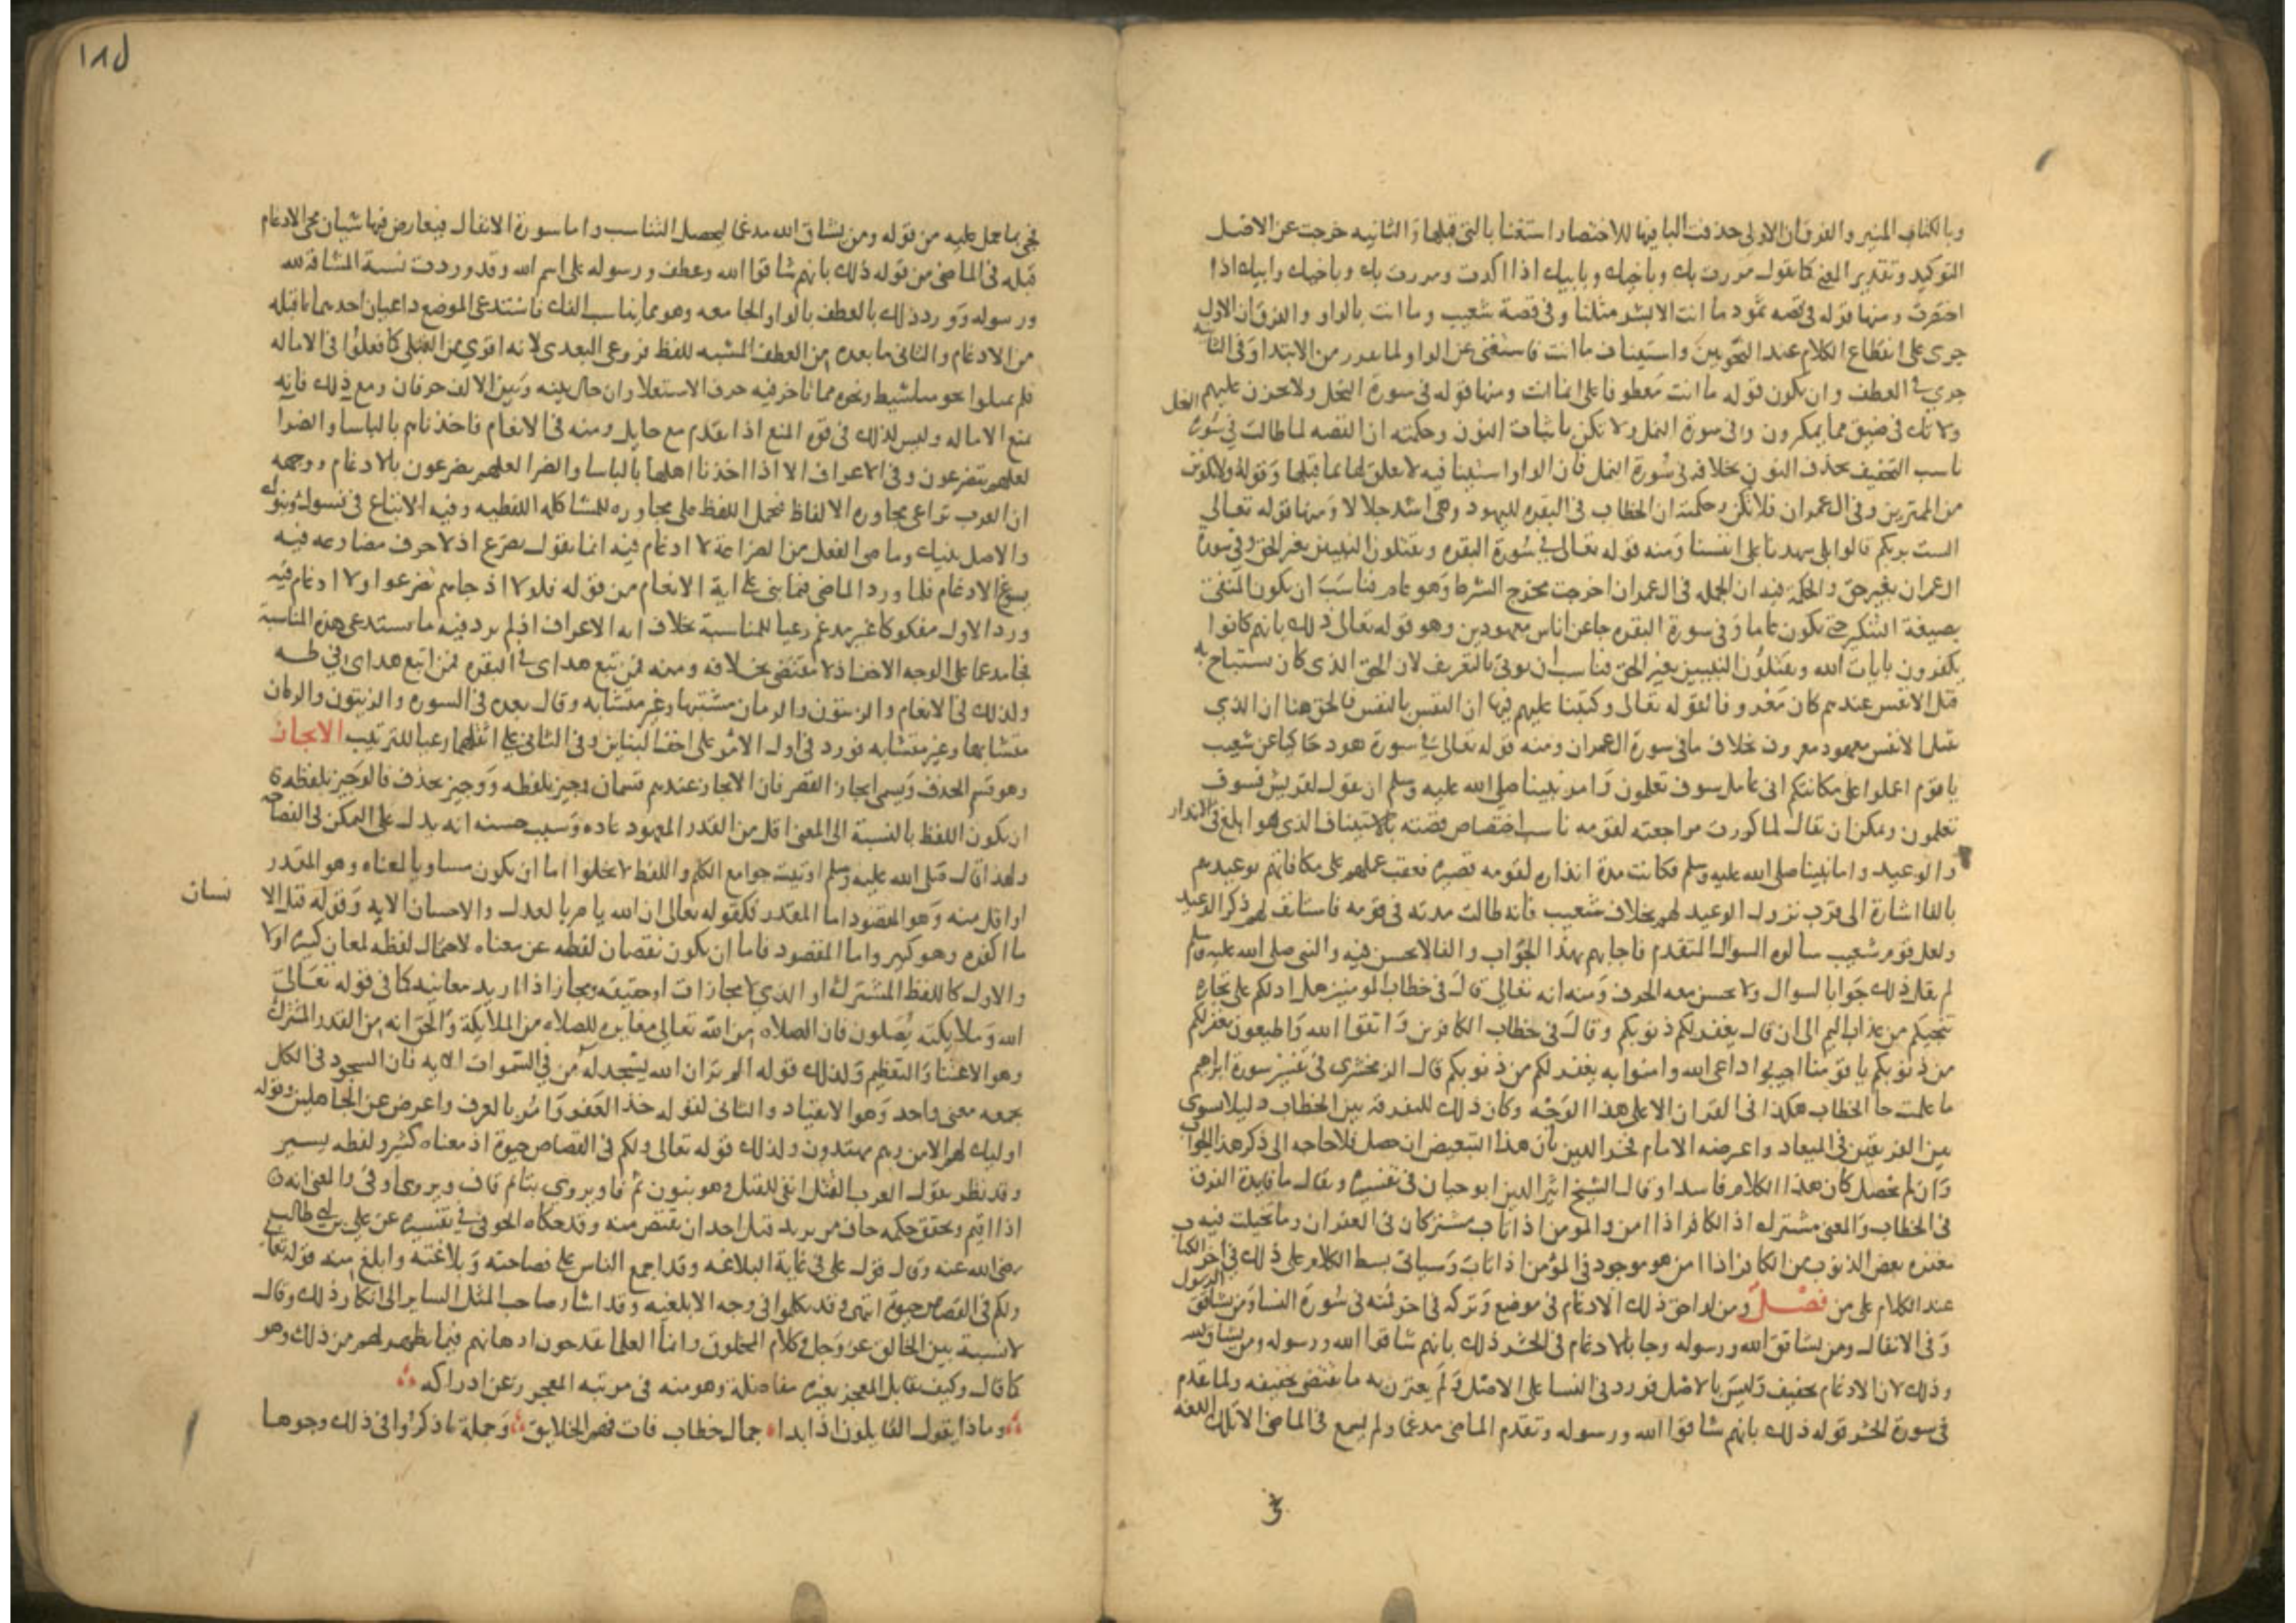 وبالكتاب المنير والفرق ان الاولى حذفت البا فيها للاختصار استغنا بالتى قبلها والثانيه خرجت عن الاصل
التوكيد وتقدير المعنى كما تقول مررت بك وباخيك وبابيك اذا اكدت ومررت بك وباخيك وابيك اذا
اختصرت ومنها قوله فى قصه ثمود ما انت الا بشر مثلنا وفى قصة شعيب وما انت بالواو والفرق ان الاول
جرى على انقطاع الكلام عند النحويين واستيناف ما انت فاستغنى عن الواو لما تقرر من الابتدا وفى الثانيه
جرى فى العطف وان يكون قوله ما انت معطوفا على انما انت ومنها قوله فى سورة النحل ولا تحزن عليهم
ولا تك فى ضيق مما يمكرون وفى سورة النمل ولا تكن باثبات النون وحكمته ان القصه لما طالت فى سورة النحل
ناسب التخفيف بحذف النون بخلافه فى سورة النمل فان الواو استينافيه لا تعلق لها بما قبلها وقوله ولا تكونن
من الممترين وفى ال عمران فلا تكن وحكمته ان الخطاب فى البقره لليهود وهى اشد جدلا ومنها قوله تعالى
الست بربكم قالوا بلى شهدنا على انفسنا ومنه قوله تعالى فى سورة البقره ويقتلون النبيين بغير الحق وفى سورة
ال عمران بغير حق والحكمة فيه ان الجمله فى ال عمران اخرجت مخرج الشرط وهو عام فناسب ان يكون المنفى
بصيغة التنكير حتى يكون عاما وفى سورة البقره جا عن اناس معهودين وهو قوله تعالى ذلك بانهم كانوا
يكفرون بايات الله ويقتلون النبيين بغير الحق فناسب ان يوتى بالتعريف لان الحق الذى كان يستباح به
قتل الانفس عندهم كان معروفا لقوله تعالى وكتبنا عليهم فيها ان النفس بالنفس فالحق هنا ان الذى
يقتل الانفس معهود معروف بخلاف ما فى سورة ال عمران ومنه قوله تعالى فى سورة هود حاكيا عن شعيب
يا قوم اعملوا على مكانتكم انى عامل سوف تعلمون وامر نبينا صلى الله عليه وسلم ان يقول لقريش فسوف
تعلمون ويمكن ان يقال لما كررت مراجعته لقومه ناسب اختصاص قصته بالاستيناف الذى هو ابلغ فى الانذار
والوعيد واما نبينا صلى الله عليه وسلم فكانت مدة انذاره لقومه قصيره فعقب عملهم على مكافاتهم بوعيدهم
بالفا اشارة الى قرب نزول الوعيد لهم بخلاف شعيب فانه طالت مدته فى قومه فاستانف لهم ذكر الوعيد
ولعل قوم شعيب سالوه السوال المتقدم فاجابهم بهذا الجواب والفا لا يحسن فيه والنبى صلى الله عليه وسلم
لم يقل ذلك جوابا لسوال ولا يحسن معه الحرف ومنه انه تعالى قال فى خطاب المومنين هل ادلكم على تجارة
تنجيكم من عذاب اليم الى ان قال يغفر لكم ذنوبكم وقال فى خطاب الكافرين واتقوا الله واطيعون يغفر لكم
من ذنوبكم يا قومنا اجيبوا داعى الله وامنوا به يغفر لكم من ذنوبكم قال الزمخشرى فى تفسير سورة ابراهيم
ما علمت جا الخطاب هكذا فى القران الا على هذا الوجه وكان ذلك للتفرقه بين الخطابين ليلا يسوى
بين الفريقين فى الميعاد واعترضه الامام فخر الدين بان هذا التبعيض ان حصل فلا حاجه الى ذكر هذا الجواب
وان لم يحصل كان هذا الكلام فاسدا وقال الشيخ اثير الدين ابو حيان فى تفسيره ويقال ما فايدة الفرق
فى الخطاب والمعنى مشترك اذ الكافر اذا امن والمومن اذا تاب مشتركان فى الغفران وما تخيلت فيه من
مغفره بعض الذنوب من الكافر اذا امن هو موجود فى المؤمن اذا تاب وسياتى بسط الكلام على ذلك فى اخر الكتاب
عند الكلام على من فصل ومن لواحق ذلك الادغام فى موضع وتركه فى اخر فمنه فى سورة النسا ومن يشاقق الرسول
وفى الانفال ومن يشاقق الله ورسوله وجا بالادغام فى الحشر ذلك بانهم شاقوا الله ورسوله ومن يشاق الله
وذلك لان الادغام تخفيف وليس بالاصل فورد فى النسا على الاصل ولم يقترن به ما يقتضى تخفيفه ولما تقدم
فى سورة الحشر قوله ذلك بانهم شاقوا الله ورسوله وتقدم الماضى مدغما ولم يسمع فى الماضى الا تلك اللغه
١٨٥
فجى بما حمل عليه من قوله ومن يشاق الله مدغما ليحصل التناسب واما سورة الانفال فتعارض فيها شيان مجى الادغام
قبله فى الماضى من قوله ذلك بانهم شاقوا الله وعطف ورسوله على اسم الله وقد وردت نسبة المشاقة لله
ورسوله وورد ذلك بالعطف بالواو الجامعه وهو مما يناسب الفك فاستدعى الموضع داعيان احدهما ما قبله
من الادغام والثانى ما بعده من العطف المشبه للفظ فروعى البعدى لانه اقوى من القبلى كما فعلوا فى الاماله
فلم يميلوا نحو مناشيط ونحوه مما تاخر فيه حرف الاستعلا وان حال بينه وبين الالف حرفان ومع ذلك فانه
يمنع الاماله وليس لذلك فى قوه المنع اذا تقدم مع حايل ومنه فى الانعام فاخذناهم بالباسا والضرا
لعلهم يتضرعون وفى الاعراف الا اخذنا اهلها بالباسا والضرا لعلهم يضرعون بالادغام ووجهه
ان العرب تراعى مجاوره الالفاظ فتحمل اللفظ على مجاوره للمشاكله اللفظيه وفيه الاتباع فى
والاصل وماضى الفعل من الضراعة لا ادغام فيه انما يقول تضرع اذ لا حرف مضارعه فيه
يسوغ الادغام فلما ورد الماضى فيما بنى على اية الانعام من قوله فلولا اذ جاهم تضرعوا ولا ادغام فيه
ورد الاول مفكوكا غير مدغم رعيا للمناسبة بخلاف ايه الاعراف اذ لم يرد فيه ما يستدعى هذه المناسبة
فجا مدغما على الوجه الاخف اذ لا مقتضى بخلافه ومنه فمن تبع هداى فى البقره فمن اتبع هداى فى طه
ولذلك فى الانعام والزيتون والرمان مشتبها وغير متشابه وقال بعده فى السوره والزيتون والرمان
متشابها وغير متشابه فورد فى اول الامر على اخف البناين وفى الثانى على اثقلهما رعيا للترتيب الايجاز
وهو قسم الحذف ويسمى ايجاز القصر فان الايجاز عندهم قسمان وجيز بلفظه ووجيز بحذف فالوجيز بلفظه
ان يكون اللفظ بالنسبة الى المعنى اقل من القدر المعهود عاده وسبب حسنه انه يدل على التمكن فى الفصاحه
ولهذا قال صلى الله عليه وسلم اوتيت جوامع الكلم واللفظ لا يخلوا اما ان يكون مساويا لمعناه وهو المقدر
او اقل منه وهو المقصود اما المقدر فكقوله تعالى ان الله يامر بالعدل والاحسان الايه وقوله قتل الا
نسان
ما اكفره وهو كثير واما المقصود فاما ان يكون نقصان لفظه عن معناه لاحتمال لفظه لمعان كثيره او لا
والاول كاللفظ المشترك او الذى لا مجازات او حقيقه ومجاز اذا اريد معانيه كما فى قوله تعالى
الله وملايكته يصلون فان الصلاه من الله تعالى مغايره للصلاه من الملايكة والحق انه من القدر المشترك
وهو الاعتنا والتعظيم وكذلك قوله الم تر ان الله يسجد له من فى السموات الايه فان السجود فى الكل
يجمعه معنى واحد وهو الانقياد والثانى كقوله خذ العفو وامر بالعرف واعرض عن الجاهلين وقوله
اوليك لهم الامن وهم مهتدون ولذلك قوله تعالى ولكم فى القصاص حيوة اذ معناه كثير ولفظه يسير
وقد نظر بقول العرب القتل انفى للقتل وهو بنون ثم فا ويروى بتا ثم قاف ويروى اوقى والمعنى انه
اذا اقيم وتحقق حكمه خاف من يريد قتل احد ان يقتص منه وقد حكاه الحوفى فى تفسيره عن على بن ابى طالب
رضى الله عنه وقال قول على فى غاية البلاغه وقد اجمع الناس على فصاحته وبلاغته وابلغ منه قوله تعالى
ولكم فى القصاص حيوة انتهى وقد تكلموا فى وجه الابلغيه وقد اشار صاحب المثل الساير الى انكار ذلك وقال
لا نسبة بين الخالق عز وجل وكلام المخلوق وانما العلما يقدحون اذهانهم فيما يظهر لهم من ذلك وهو
كما قال وكيف يقابل المعجز بغيره مفاضلة وهو منه فى مرتبه العجز عن ادراكه
وماذا يقول القايلون اذا بدا جمال خطاب فات فهم الخلايق وجملة ما ذكروا فى ذلك وجوها